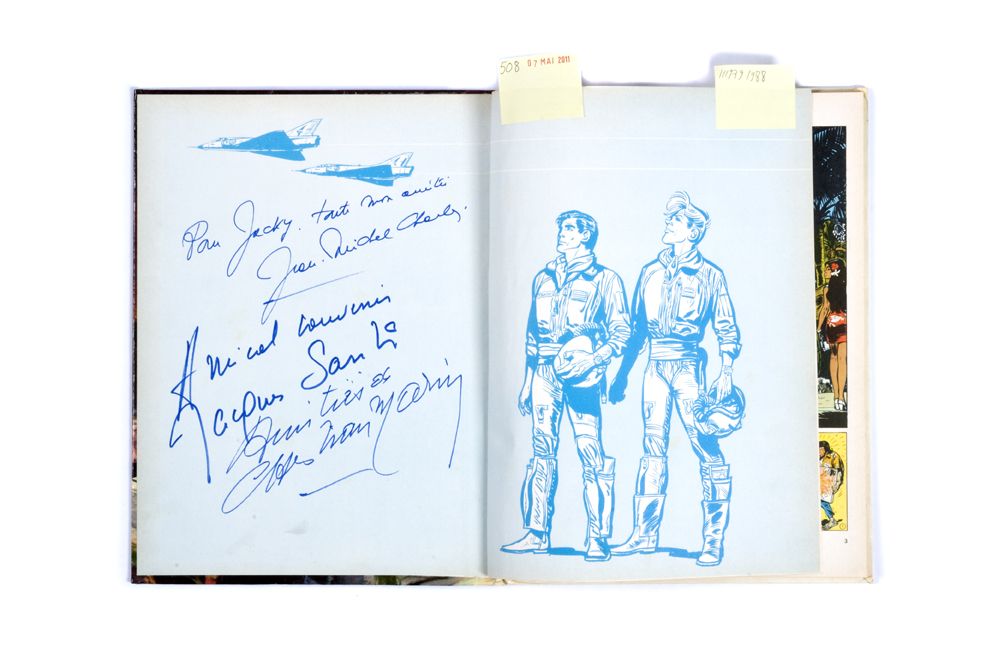 508 07 MAI 2011
Pour Jacky. toute mon amitié
Jean-Michel Charlier
Amical souvenir
Jacques Santi
Amitiés de
Christian Marin
3